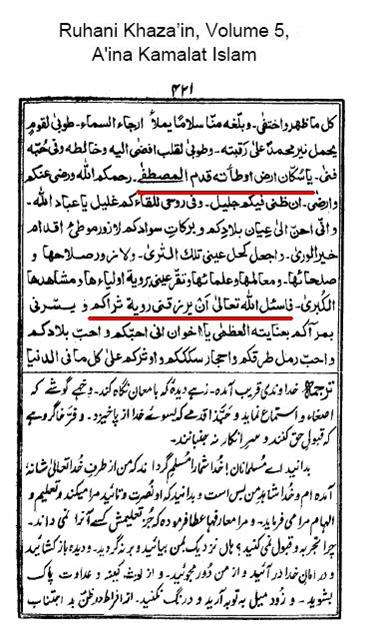 Ruhani Khaza'in, Volume 5,
A'ina Kamalat Islam
۴۲۱
كل ما ظهر و اختفٰى۔ وبلّغه منا سلامًا يملأ ارجاء السماء۔ طوبٰى لقوم
يحمل نير محمدٍ على رقبته۔ وطوبٰى لقلب افضٰى اليه وخالطه وفى حُبّه
فنى۔ يا سُكّان ارض اوطأته قدم المصطفٰے۔ رحمكم الله ورضى عنكم
وارضٰى۔ ان ظنى فيكم جليل۔ وفى روحى للقاءكم غليل يا عباد الله۔
وانى احنّ الٰى عيان بلادكم و بركات سوادكم لازور موطئ اقدام
خير الورىٰ۔ واجعل كحل عينى تلك الثرىٰ۔ ولازور صلاحها و
صلحائها۔ ومعالمها وعلمائها وتقرّ عينى بروية اولياءها ومشاهدها
الكبرىٰ۔ فاسئل الله تعالٰى ان يرزقنى روية ثراكم و يسرنى
بمرآكم بعنايته العظمٰى يا اخوان انى احبّكم و احبّ بلادكم
و احبّ رمل طرقكم و احجار سكككم و اوثركم على كل ما فى الدنيا
ترجمه خداوندی قریب آمده۔ زہے دیدهٔ که بامعان نگاه کند۔ و خہے گوشے که
اصغاء و استماع نماید و حبّذا قدمے که بسوئے خدا بر خیزد۔ و فرّخا گروہے
که قبول حق کنند و سر انکار نہ جنبانند۔
بدانید اے مسلمانان! خدا شما را مسلم گرداند که من از طرف خدا تعالیٰ شانه
آمده ام و خدا شاہد من بس است و بدانید که او نصرت و تائید مرا میکند و تعلیم و
الہام مرا می فرماید۔ و مرا معارفہا عطا فرموده که جز تعلیمش کسے آنرا نمی داند۔
چرا تجربه و قبول نمی کنید؟ ہاں نزدیک من بیائید و برنگردید۔ و دیده باز کشائید
و در امان خدا در آئید و از من دور مجوئید۔ و از لوث کینه و عداوت پاک
بشوید۔ و زود میل به توبه آرید و درنگ نکنید۔ از افراط در ظن بد اجتناب